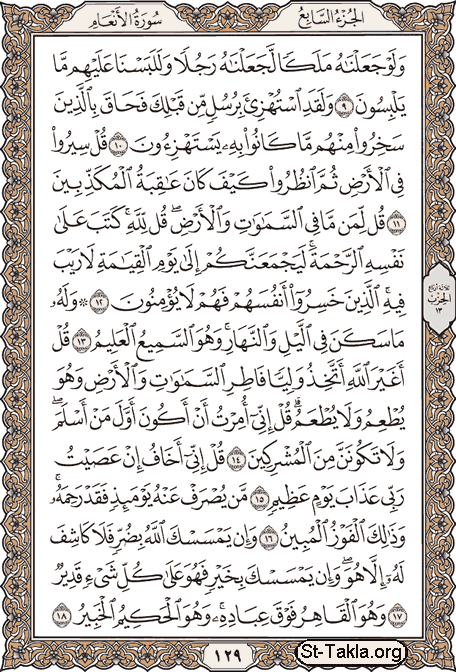 الجزء السابع سورة الأنعام
وَلَوْ جَعَلْنَٰهُ مَلَكًا لَّجَعَلْنَٰهُ رَجُلًا وَلَلَبَسْنَا عَلَيْهِم مَّا
يَلْبِسُونَ ٩ وَلَقَدِ ٱسْتُهْزِئَ بِرُسُلٍ مِّن قَبْلِكَ فَحَاقَ بِٱلَّذِينَ
سَخِرُوا۟ مِنْهُم مَّا كَانُوا۟ بِهِۦ يَسْتَهْزِءُونَ ١٠ قُلْ سِيرُوا۟
فِى ٱلْأَرْضِ ثُمَّ ٱنظُرُوا۟ كَيْفَ كَانَ عَٰقِبَةُ ٱلْمُكَذِّبِينَ
١١ قُل لِّمَن مَّا فِى ٱلسَّمَٰوَٰتِ وَٱلْأَرْضِ ۖ قُل لِّلَّهِ ۚ كَتَبَ عَلَىٰ
نَفْسِهِ ٱلرَّحْمَةَ ۚ لَيَجْمَعَنَّكُمْ إِلَىٰ يَوْمِ ٱلْقِيَٰمَةِ لَا رَيْبَ
فِيهِ ۚ ٱلَّذِينَ خَسِرُوٓا۟ أَنفُسَهُمْ فَهُمْ لَا يُؤْمِنُونَ ١٢ ۞ وَلَهُۥ
مَا سَكَنَ فِى ٱلَّيْلِ وَٱلنَّهَارِ ۚ وَهُوَ ٱلسَّمِيعُ ٱلْعَلِيمُ ١٣ قُلْ
أَغَيْرَ ٱللَّهِ أَتَّخِذُ وَلِيًّا فَاطِرِ ٱلسَّمَٰوَٰتِ وَٱلْأَرْضِ وَهُوَ
يُطْعِمُ وَلَا يُطْعَمُ ۗ قُلْ إِنِّىٓ أُمِرْتُ أَنْ أَكُونَ أَوَّلَ مَنْ أَسْلَمَ ۖ
وَلَا تَكُونَنَّ مِنَ ٱلْمُشْرِكِينَ ١٤ قُلْ إِنِّىٓ أَخَافُ إِنْ عَصَيْتُ
رَبِّى عَذَابَ يَوْمٍ عَظِيمٍ ١٥ مَّن يُصْرَفْ عَنْهُ يَوْمَئِذٍ فَقَدْ رَحِمَهُۥ ۚ
وَذَٰلِكَ ٱلْفَوْزُ ٱلْمُبِينُ ١٦ وَإِن يَمْسَسْكَ ٱللَّهُ بِضُرٍّ فَلَا كَاشِفَ
لَهُۥٓ إِلَّا هُوَ ۖ وَإِن يَمْسَسْكَ بِخَيْرٍ فَهُوَ عَلَىٰ كُلِّ شَىْءٍ قَدِيرٌ
١٧ وَهُوَ ٱلْقَاهِرُ فَوْقَ عِبَادِهِۦ ۚ وَهُوَ ٱلْحَكِيمُ ٱلْخَبِيرُ ١٨
ثلاثة أرباع
الحزب
١٣
١٢٩
St-Takla.org